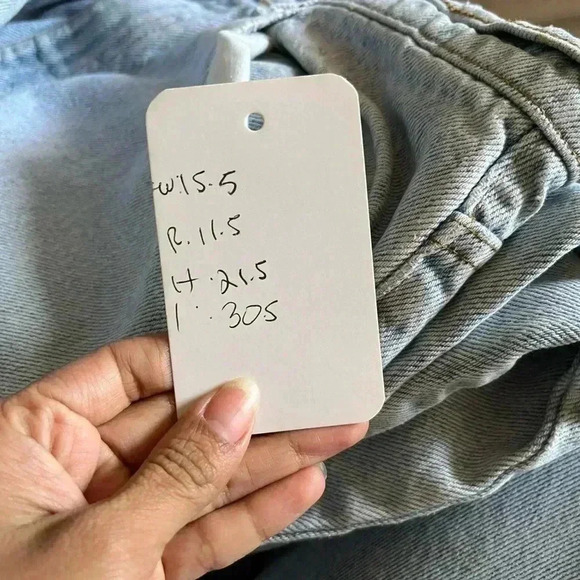 w:15.5
R.11.5
H.21.5
I:.305